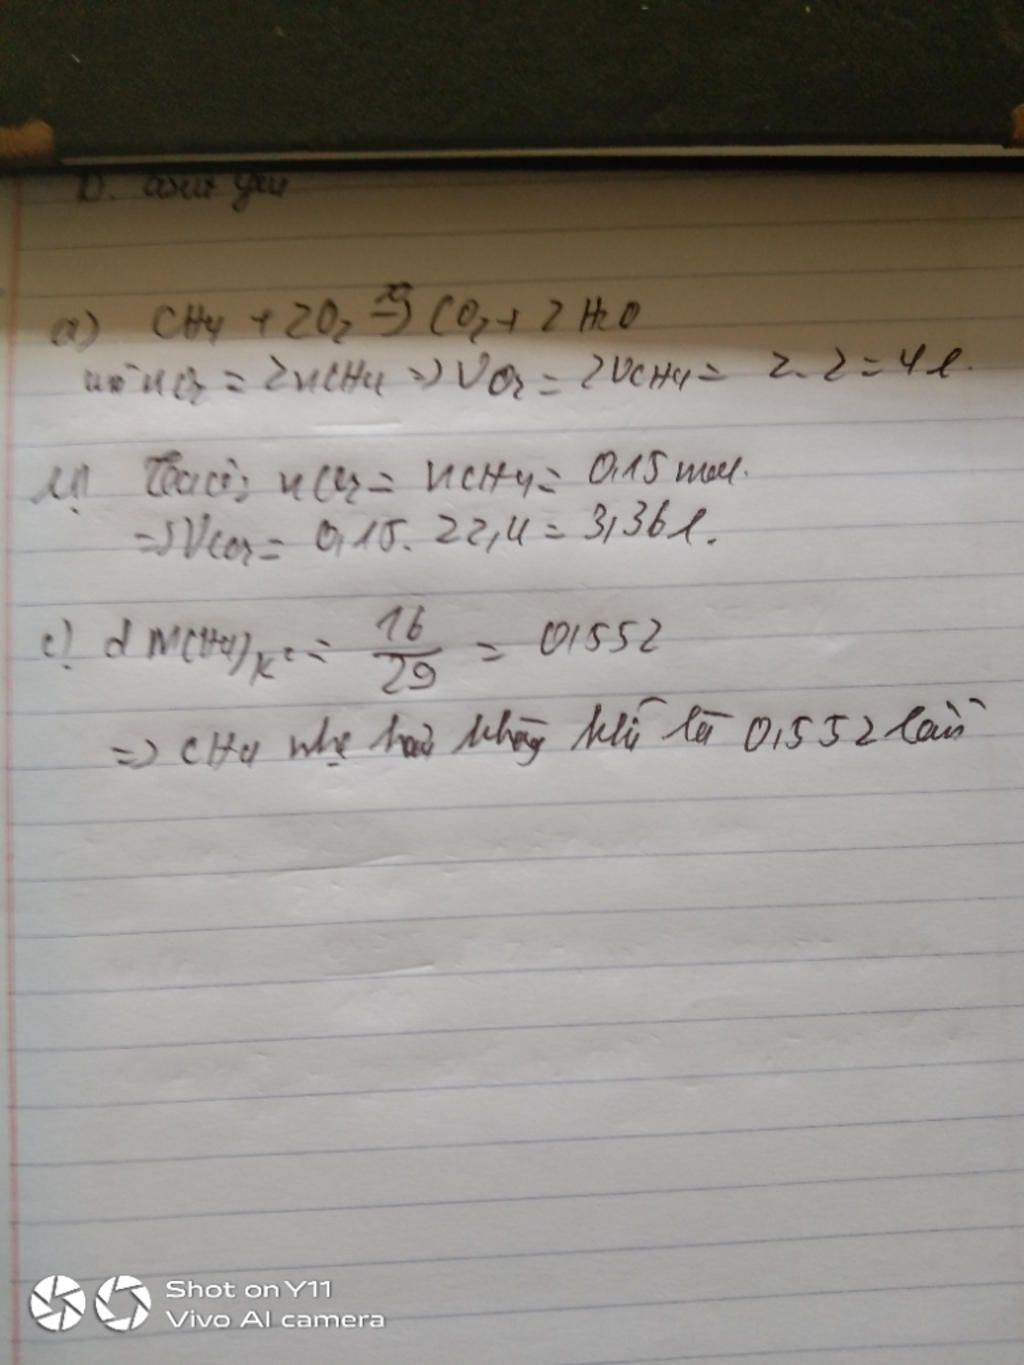 a) CH4 + 2O2 t° → CO2 + 2 H2O
nO2 = 2nCH4 => VO2 = 2VCH4 = 2.2 = 4 l.
Ta có: nCO2 = nCH4 = 0,15 mol.
=> VCO2 = 0,15. 22,4 = 3,36 l.
c) d M(CH4)/kk = 16/29 = 0,552
=> CH4 nhẹ hơn không khí là 0,552 lần
Shot on Y11
Vivo AI camera